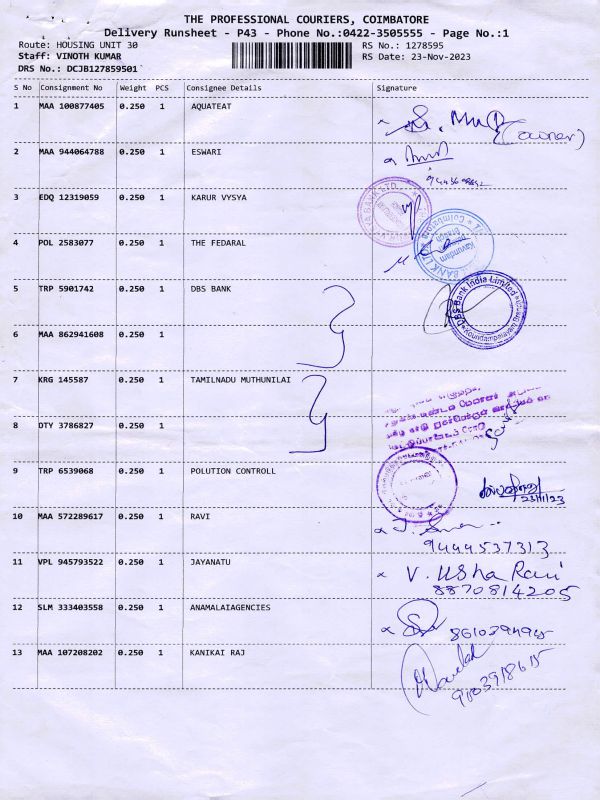 THE PROFESSIONAL COURIERS, COIMBATORE
Delivery Runsheet - P43 - Phone No.:0422-3505555 - Page No.:1
Route: HOUSING UNIT 30 RS No.: 1278595
Staff: VINOTH KUMAR RS Date: 23-Nov-2023
DRS No.: DCJB127859501
S No Consignment No Weight PCS Consignee Details Signature
1 MAA 100877405 0.250 1 AQUATEAT
(owner)
2 MAA 944064788 0.250 1 ESWARI
3 EDQ 12319059 0.250 1 KARUR VYSYA
BANK LTD.
4 POL 2583077 0.250 1 THE FEDARAL
Coimbatore
BANK LTD
5 TRP 5901742 0.250 1 DBS BANK
DBS Bank India Limited
6 MAA 862941608 0.250 1
7 KRG 145587 0.250 1 TAMILNADU MUTHUNILAI
8 DTY 3786827 0.250 1
9 TRP 6539068 0.250 1 POLUTION CONTROLL
23/11/23
10 MAA 572289617 0.250 1 RAVI
9444537313
11 VPL 945793522 0.250 1 JAYANATU
V. Usha Rani
8870814205
12 SLM 333403558 0.250 1 ANAMALAIAGENCIES
13 MAA 107208202 0.250 1 KANIKAI RAJ